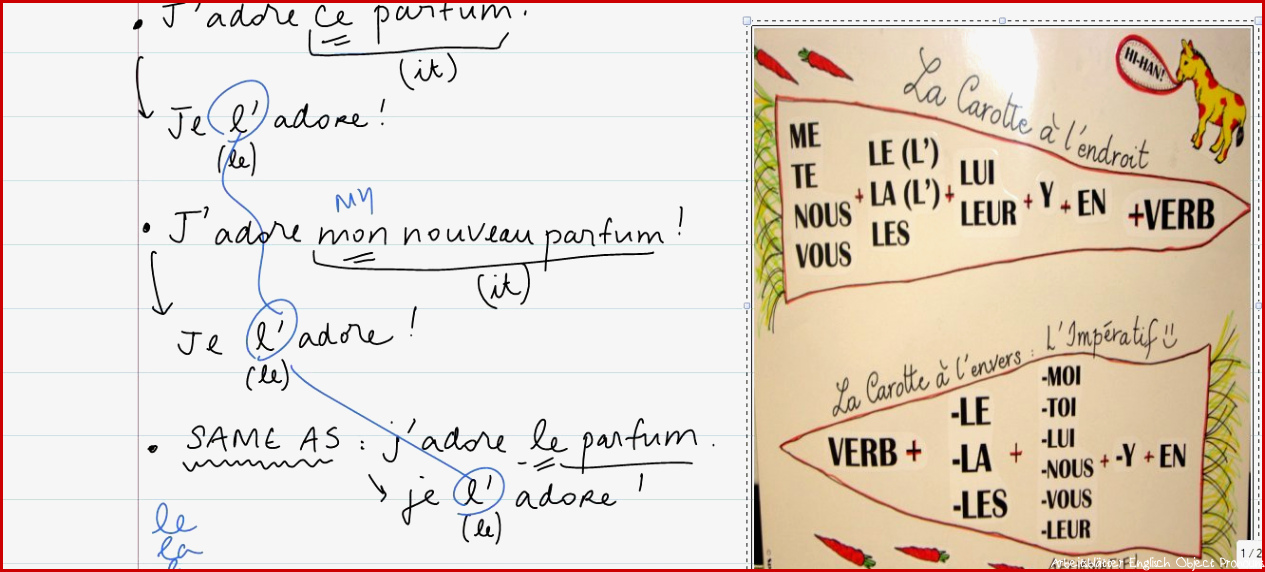 • J'adore ce parfum.
(it)
Je l' adore !
(le)
my
• J'adore mon nouveau parfum !
(it)
Je l' adore !
(le)
• SAME AS : j'adore le parfum.
je l' adore !
(le)
le
la
HI-HAN!
La Carotte à l'endroit
ME
TE
NOUS
VOUS
+
LE (L')
LA (L')
LES
+
LUI
LEUR
+ Y + EN +VERB
La Carotte à l'envers : L'Impératif
VERB +
-LE
-LA
-LES
+
-MOI
-TOI
-LUI
-NOUS
-VOUS
-LEUR
+ -Y + EN
1 / 2
Arbeitsblätter English Object